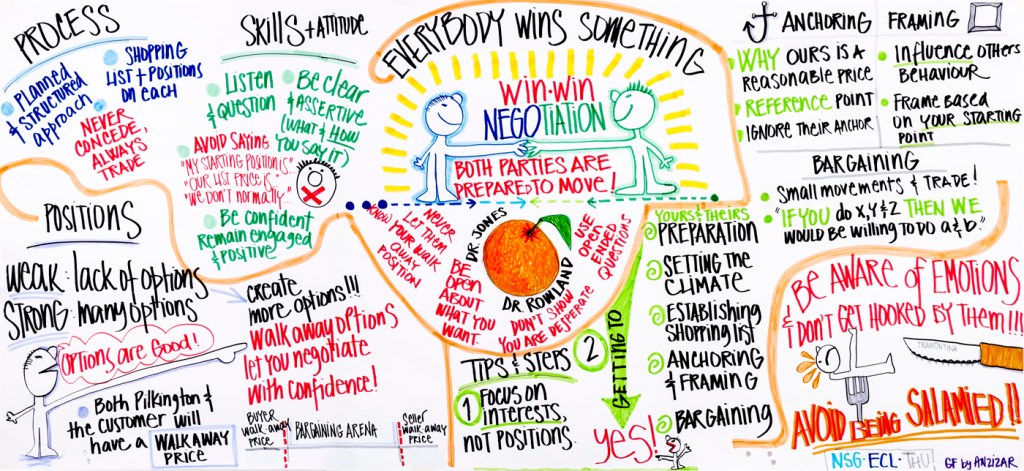 PROCESS
PLANNED
& STRUCTURED
approach
SHOPPING
LIST + POSITIONS
ON EACH
NEVER
CONCEDE,
ALWAYS
TRADE
SKILLS + ATTITUDE
LISTEN
& QUESTION
Be clear
& ASSERTIVE
(WHAT & HOW
YOU SAY IT)
AVOID SAYING
"MY STARTING POSITION IS"
"OUR LIST PRICE IS"
"WE DON'T NORMALLY..."
Be confident
Remain engaged
& POSITIVE
EVERYBODY WINS SOMETHING
WIN-WIN
NEGOTIATION
BOTH PARTIES ARE
PREPARED TO MOVE!
ANCHORING
WHY OURS IS A
REASONABLE PRICE
REFERENCE POINT
IGNORE THEIR ANCHOR
FRAMING
INFLUENCE OTHERS
BEHAVIOUR
FRAME BASED
ON YOUR STARTING
POINT
BARGAINING
Small movements & TRADE!
"IF YOU do X,Y & Z THEN WE
WOULD BE WILLING TO DO a & b."
POSITIONS
WEAK: lack of options
STRONG: many options
OPTIONS ARE GOOD!
Both Pilkington &
the customer will
have a WALK AWAY
PRICE
CREATE
MORE OPTIONS!!!
WALK AWAY OPTIONS
let you negotiate
with confidence!
BUYER
walk-away
PRICE
BARGAINING ARENA
Seller
walk-away
PRICE
NEVER
LET THEM
KNOW YOUR WALK
AWAY
POSITION
DR JONES
DR ROWLAND
BE
OPEN
ABOUT
WHAT YOU
WANT.
DON'T SHOW
YOU ARE DESPERATE
USE
OPEN
ENDED
QUESTIONS
TIPS & STEPS
1 FOCUS ON
INTERESTS,
NOT POSITIONS.
2
GETTING TO
YES!
YOURS & THEIRS
PREPARATION
SETTING THE
CLIMATE
ESTABLISHING
SHOPPING LIST
ANCHORING
& FRAMING
BARGAINING
BE AWARE OF EMOTIONS
& DON'T GET HOOKED BY THEM!!!
TRAMONTINA
AVOID BEING SALAMIED!!
NSG·ECL·THU!
GF by ANZIZAR